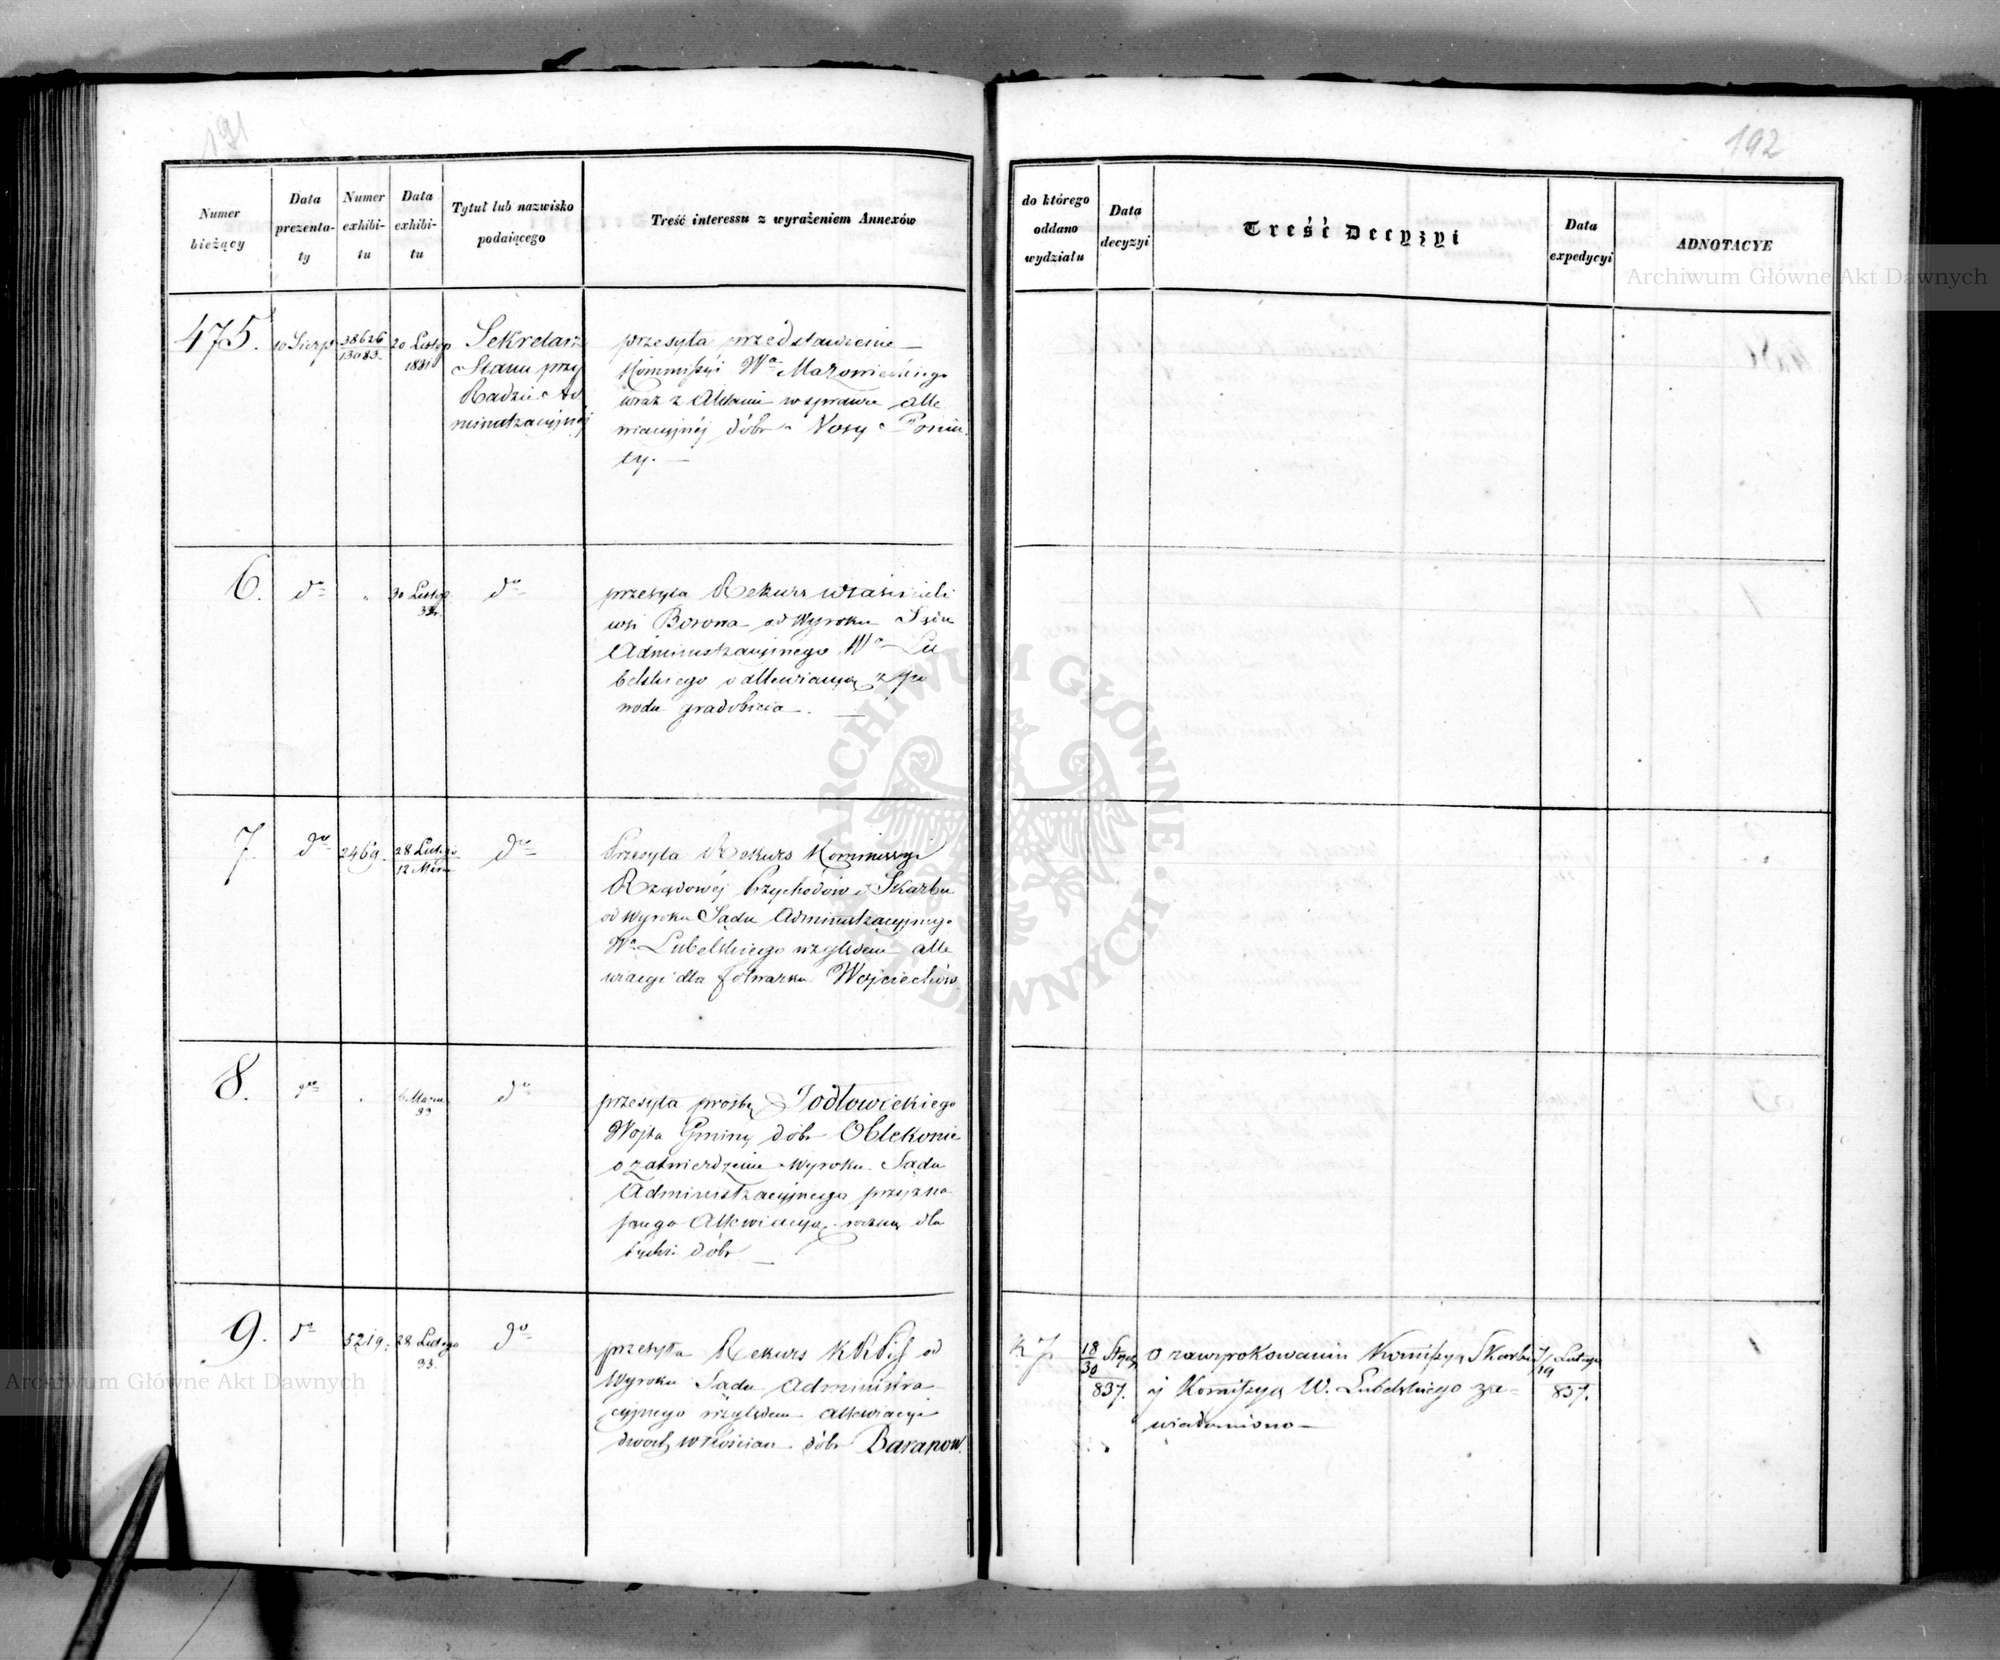 191
Numer
bieżący
Data
prezenta-
ty
Numer
exhibi-
tu
Data
exhibi-
tu
Tytuł lub nazwisko
podaiącego
Treść interessu z wyrażeniem Annexów
475.
10 Sierp
38626
13083.
20 Listop
1831
Sekretarz
Stanu przy
Radzie Ad
ministracyjnéj
przesyła przedstawienie
Kommissyi Wa Mazowieckiego
wraz z Aktami w sprawie alle
wiacyjnéj dóbr Nosy Ponia
ty.
6.
do
"
30 Listop.
do
przesyła Rekurs właścicieli
wsi Borowa od Wyroku Sądu
Administracyjnego Wa Lu
belskiego o allewiacyą z po
wodu gradobicia.
7.
do
2469.
28 Lutego
12 Marca
do
Przesyła Rekurs Kommissyi
Rządowéj Przychodów i Skarbu
od Wyroku Sądu Administracyjnego
Wa Lubelskiego względem alle
wiacyi dla folwarku Wojciechów
8.
do
6 Marca
33
do
przesyła prośbę Jodłowickiego
Wojta Gminy dóbr Oblekonie
o zatwierdzenie Wyroku Sądu
Administracyjnego przyzna
jącego Allewiacyą roczną dla
tychże dóbr
9.
do
5219.
28 Lutego
33.
do
przesyła Rekurs KRPiS od
Wyroku Sądu Administra
cyjnego względem allewiacyi
dwóch włościan dóbr Baranow.
192
do którego
oddano
wydziału
Data
decyzyi
Treść Decyzyi
Data
expedycyi
ADNOTACYE
18
30
Stycz
837.
o zawyrokowaniu Komissya Skarbu
i Komissya W. Lubelskiego za-
wiadomiono
7/19 Lutego
837.
Archiwum Główne Akt Dawnych
ARCHIWUM GŁÓWNE AKT DAWNYCH
Archiwum Główne Akt Dawnych